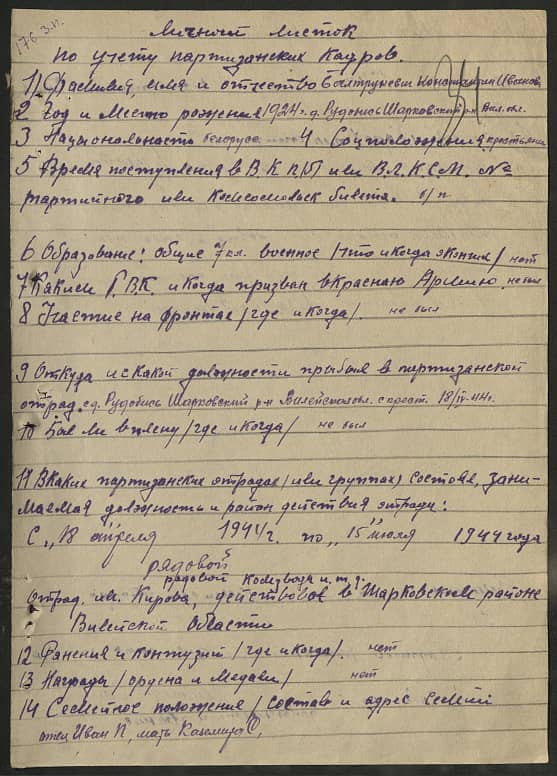 176 З.П.
Личный листок
по учету партизанских кадров.
1) Фамилия, имя и отчество Балтруневич Константин Иванов.
2 Год и место рожения 1924 г. д. Рудобись Шарковский р-н Вил. обл.
3 Нацыональность белорус 4 Соцположэния крестьянин
5 Время поступления в В.К.П(б) или ВЛ.К.С.М. №
партийного или Комсомольск билета. б/п
6 Образование: общие 7 кл. военное /что и когда экончил/ нет
7 Каким Р.В.К. и когда призван в Красную Армию не был
8 Участие на фронтах /где и когда/. не был
9 Откуда и с какой должности прыбыл в партизанской
отряд. с д. Рудобись Шарковский р-н Вилейской обл. с крест. 18/IV-44 г.
10 Был ли в плену /где и когда/ не был
11 В каких партизанских отрадах /или группах/ состоял, зани-
маемая должность и район действия отряда:
С „18 апреля 1944 г. по „15" июля 1944 года
рядовой
рядовой комвзвода и.т.д.
Отрад. им. Кирова, действовов в Шарковском районе
Вилейской Области
12 Ранения и контузий /где и когда/. нет
13 Награды /ордена и медали/ нет
14 Семейное положение /состав и адрес семьи
отец Иван П, мать Казимира О,